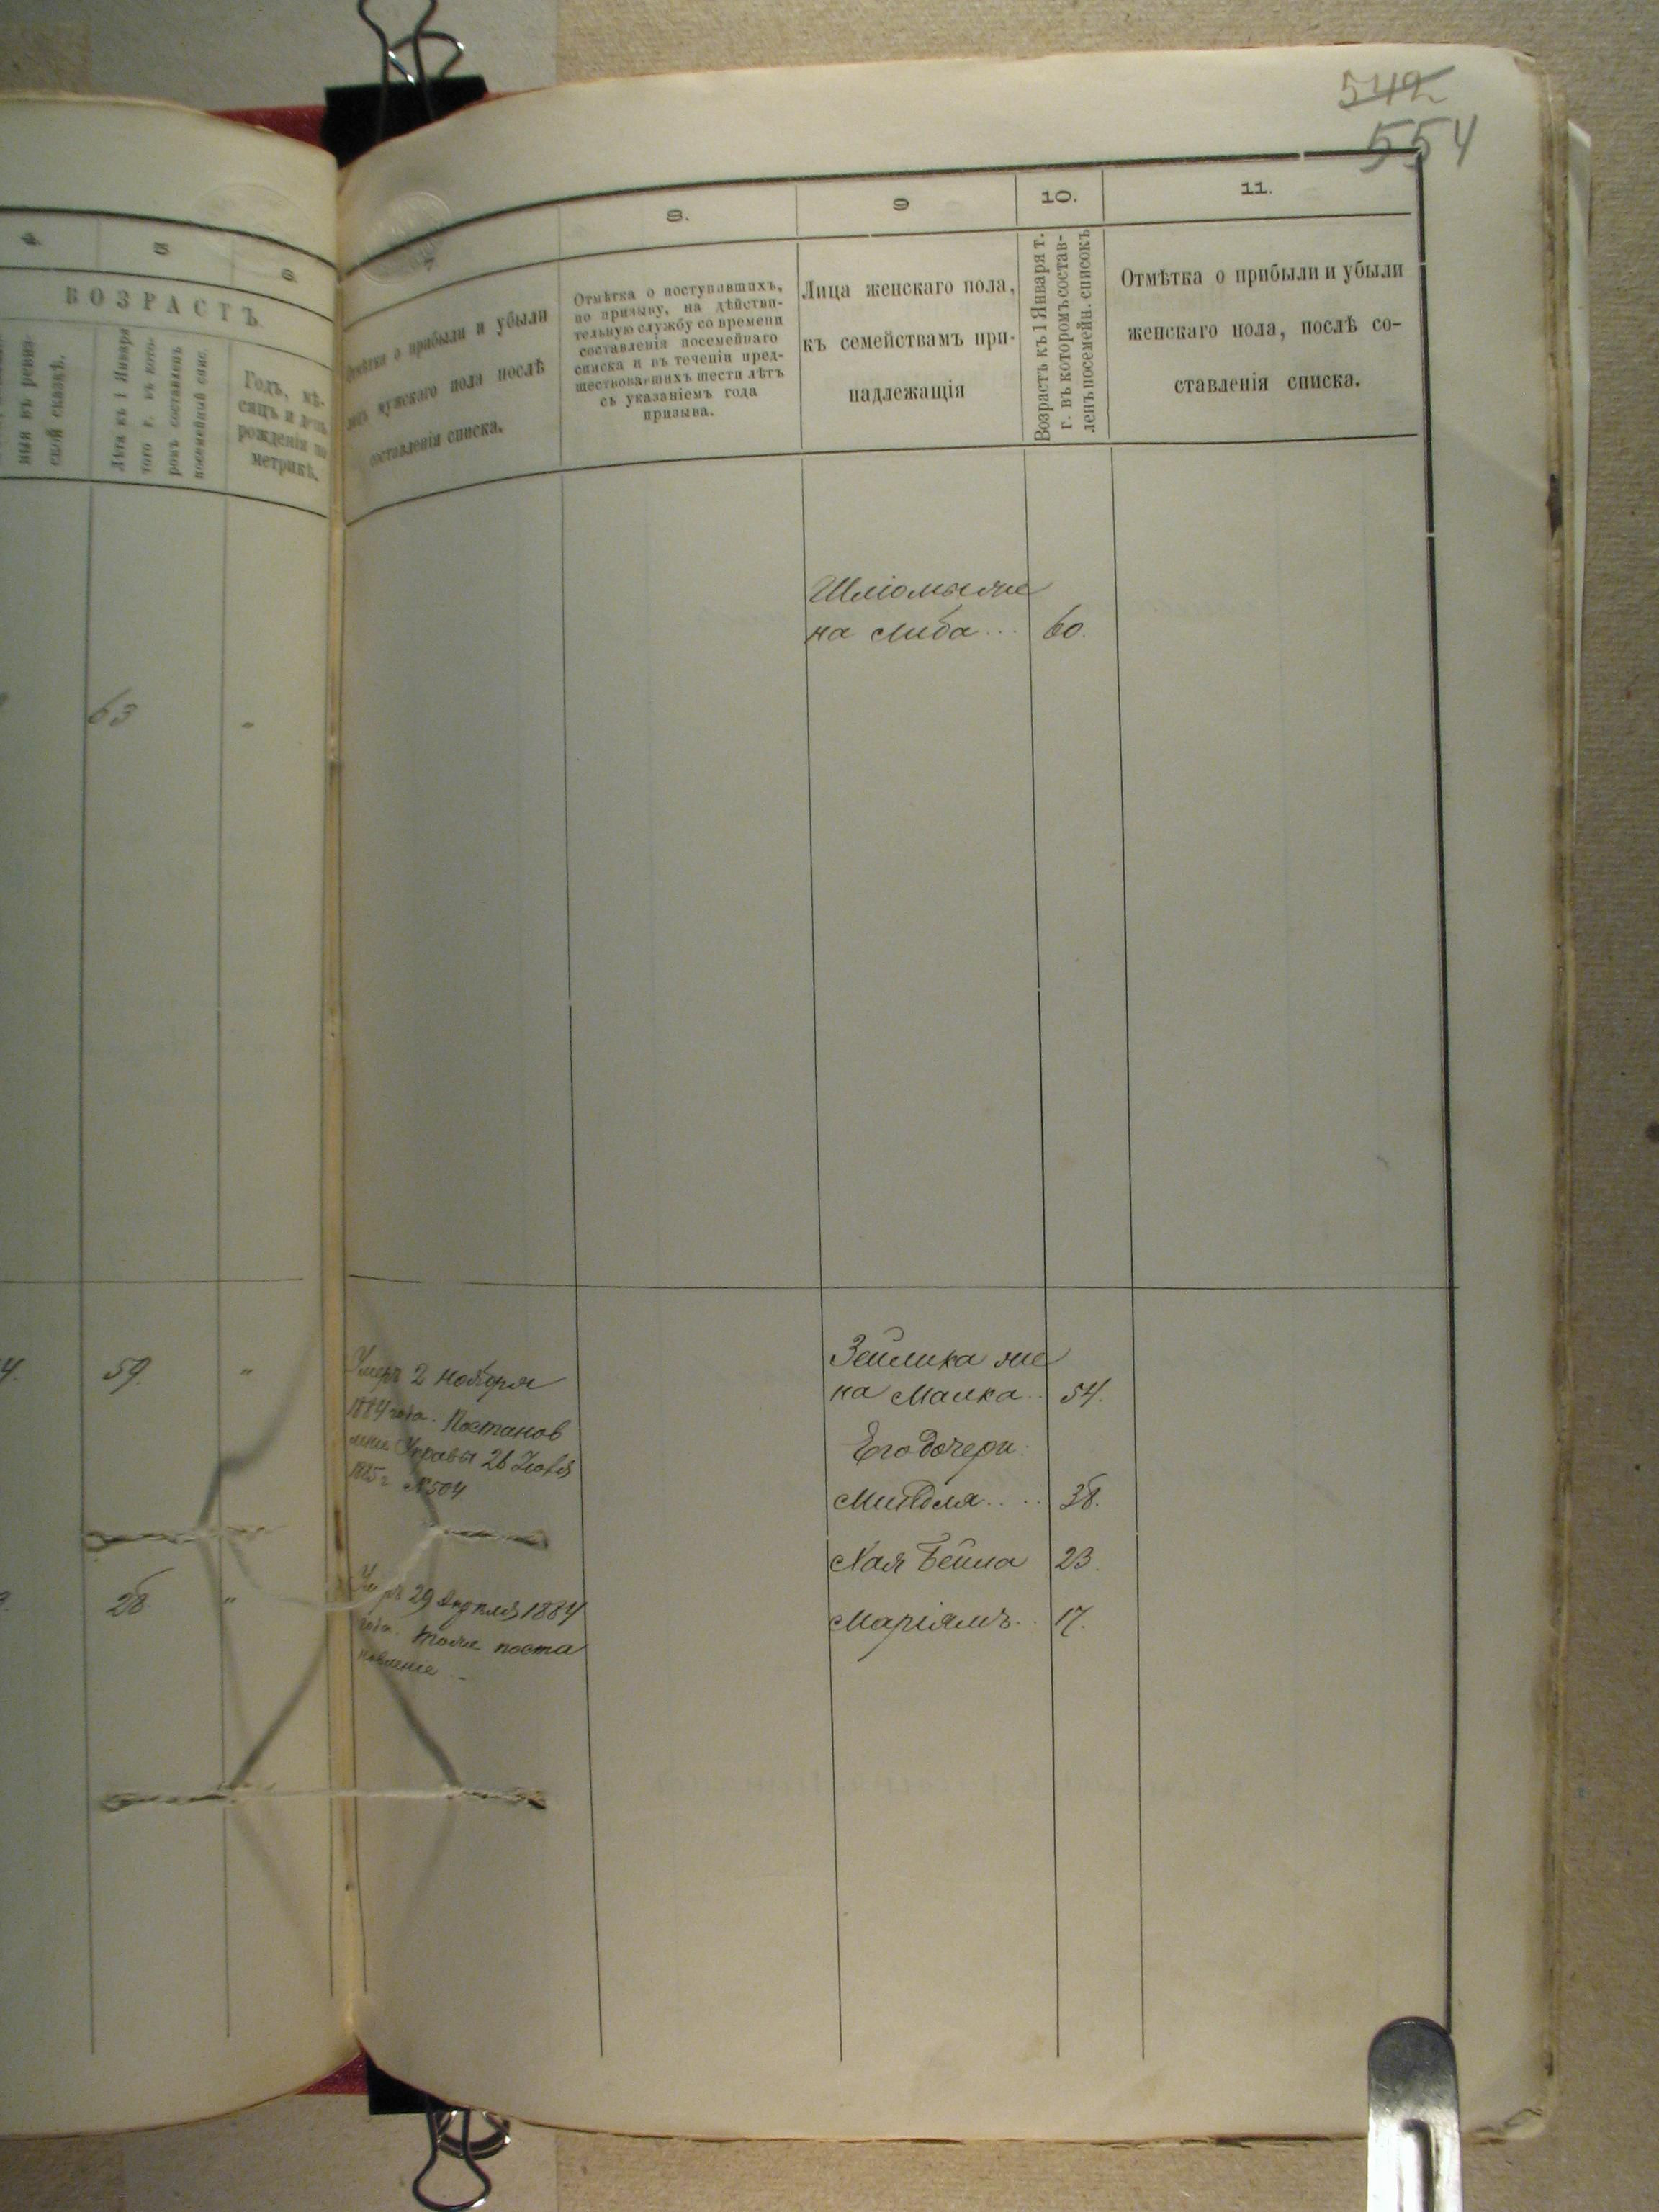 549
554
4
5
6
8.
9
10.
11.
ВОЗРАСТЪ
Лѣта къ 1 Января
того г. въ кото-
ромъ составленъ
посемейный спис.
Годъ, мѣ-
сяцъ и день
рожденія по
метрикѣ.
Отмѣтка о прибыли и убыли
лицъ мужскаго пола послѣ
составленія списка.
Отмѣтка о поступившихъ,
по призыву, на дѣйстви-
тельную службу со времени
составленія посемейнаго
списка и въ теченіи пред-
шествовавшихъ шести лѣтъ
съ указаніемъ года
призыва.
Лица женскаго пола,
къ семействамъ при-
надлежащія
Возрастъ къ 1 Января т.
г. въ которомъ состав-
ленъ посемейн. списокъ
Отмѣтка о прибыли и убыли
женскаго пола, послѣ со-
ставленія списка.
Шліомы же
на Либа... 60.
63 "
4. 59. "
Умеръ 2 ноября
1884 года. Постанов
леніе Управы 26 Іюля
1885 г №504
Зейлика же
на Малка.. 54.
Его дочери:
Миндля.... 38.
Хая Бейла 23.
Маріямъ.. 17.
28 "
Умеръ 29 Апрѣля 1884
года. Тоже поста
новленіе..